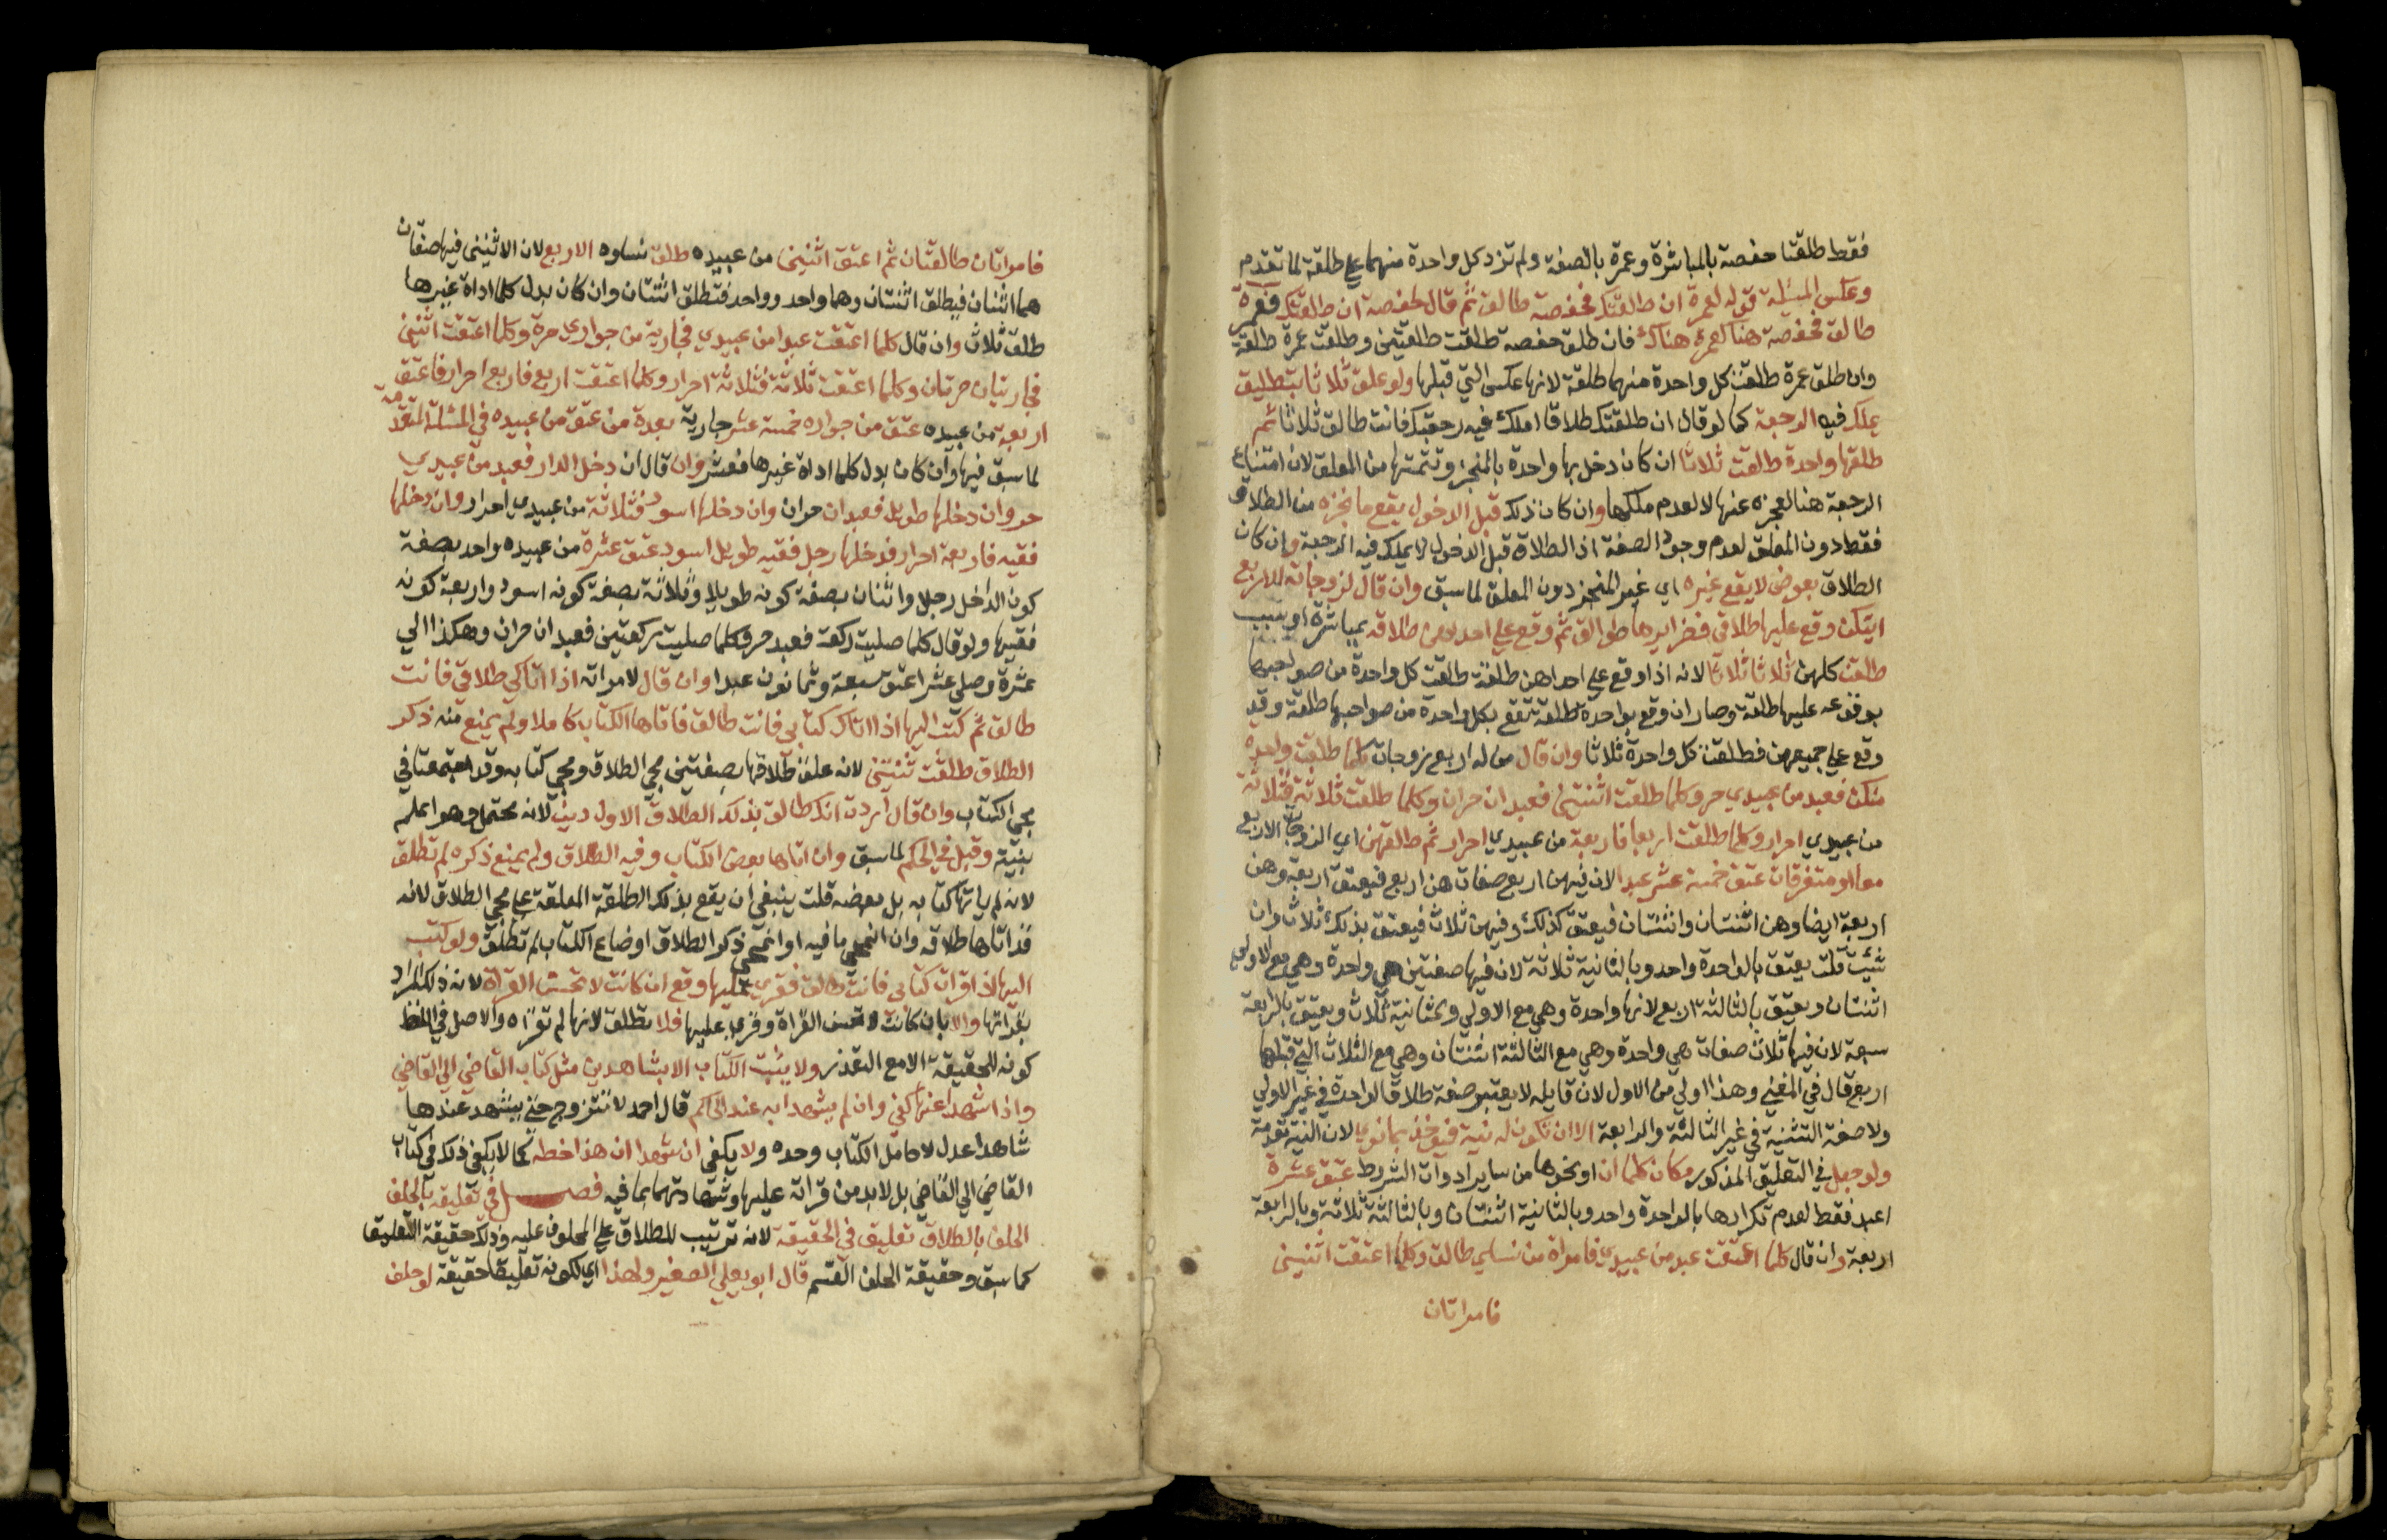 فقط طلقتا حفصة بالمباشرة وعمرة بالصفة ولم تزد كل واحدة منهما على طلقة لما تقدم
وعكس المسئلة قوله لعمرة ان طلقتك فحفصة طالق ثم قال لحفصة ان طلقتك فعمرة
طالق فحفصة هنا كعمرة هناك فان طلق حفصة طلقت طلقتين وطلقت عمرة طلقة
وان طلق عمرة طلقت كل واحدة منهما طلقة لانها عكس التي قبلها ولو علق ثلاثا بتطليق
يملك فيه الرجعة كما لو قال ان طلقتك طلاقا املك فيه رجعتك فانت طالق ثلاثا ثم
طلقها واحدة طلقت ثلاثا ان كان دخل بها واحدة بالمنجز وتتمتها من المعلق لان امتناع
الرجعة هنا لعجزه عنها لا لعدم ملكها وان كان ذلك قبل الدخول يقع ما نجزه من الطلاق
فقط دون المعلق لعدم وجود الصفة اذ الطلاق قبل الدخول لا يملك فيه الرجعة وان كان
الطلاق بعوض لا يقع غيره اي غير المنجز دون المعلق لما سبق وان قال لزوجاته الاربع
ايتكن وقع عليها طلاقي فضرايرها طوالق ثم وقع على احداهن طلاقه بمباشرة او سبب
طلقت كلهن ثلاثا ثلاثا لانه اذا وقع على احداهن طلقة طلقت كل واحدة من صواحبها
بوقوعه عليها طلقة وصار ان وقع بواحدة طلقة تقع بكل واحدة من صواحبها طلقة وقد
وقع على جميعهن فطلقت كل واحدة ثلاثا وان قال من له اربع زوجات كلما طلقت واحدة
منكن فعبد من عبيدي حر وكلما طلقت اثنتين فعبدان حران وكلما طلقت ثلاثة فثلاثة
من عبيدي احرار وكلما طلقت اربعا فاربعة من عبيدي احرار ثم طلقهن اي الزوجات الاربع
معا او متفرقات عتق خمسة عشر عبدا لان فيهن اربع صفات هن اربع فيعتق اربعة وهن
اربعة ايضا وهن اثنتان واثنتان فيعتق كذلك وفيهن ثلاث فيعتق بذلك ثلاث وان
شيت قلت يعتق بالواحدة واحد وبالثانية ثلاثة لان فيها صفتين هي واحدة وهي مع الاولى
اثنتان ويعتق بالثالثة اربع لانها واحدة وهي مع الاولى وثمانية ثلاث ويعتق بالرابعة
سبعة لان فيها ثلاث صفات هي واحدة وهي مع الثالثة اثنتان وهي مع الثلاث التي قبلها
اربع قال في المغني وهذا اولى من الاول لان قايله لا يعتبر صفة طلاق الواحدة في غير الاولى
ولا صفة التثنية في غير الثالثة والرابعة الا ان تكون له نية فيوخذ بما نوى لان النية مقدمة
ولو جعل في التعليق المذكور مكان كلما ان او نحوها من ساير ادوات الشرط عتق عشرة
اعبد فقط لعدم تكرارها بالواحدة واحد وبالثانية اثنتان وبالثالثة ثلاثة وبالرابعة
اربعة وان قال كلما اعتقت عبد من عبيدي فامراة من نساي طالق وكلما اعتقت اثنين
فامراتان
فامراتان طالقتان ثم اعتق اثنين من عبيده طلق نساوه الاربع لان الاثنين فيها صفتان
هما اثنان فيطلق اثنتان وهما واحد وواحد فتطلق اثنتان وان كان بدل كلما اداة غيرها
طلق ثلاث وان قال كلما اعتقت عبدا من عبيدي فجارية من جواري حرة وكلما اعتقت اثنين
فجاريتان حرتان وكلما اعتقت ثلاثة فثلاثة احرار وكلما اعتقت اربع فاربع احرار فاعتق
اربعة من عبيده عتق من جواره خمسة عشر جارية بعدة من عتق من عبيده في المسئلة المتقدمة
لما سبق فيها وان كان بدل كلما اداة غيرها فعشر وان قال ان دخل الدار فعبد من عبيدي
حر وان دخلها طويل فعبدان حران وان دخلها اسود فثلاثة من عبيدي احرار وان دخلها
فقيه فاربعة احرار فدخلها رجل فقيه طويل اسود عتق عشرة من عبيده واحد بصفة
كون الداخل رجل واثنان بصفة كونه طويلا وثلاثة بصفة كونه اسود واربعة كونه
فقيها ولو قال كلما صليت ركعة فعبد حر وكلما صليت ركعتين فعبدان حران وهكذا الى
عشرة وصلى عشرا عتق سبعة وثمانون عبدا وان قال لامراته اذا اتاكي طلاقي فانت
طالق ثم كتب اليها اذا اتاك كتابي فانت طالق فاتاها الكتاب كاملا ولم يمنع منه ذكر
الطلاق طلقت ثنتين لانه علق طلاقها بصفتين مجي الطلاق ومجي كتابه وقد اجتمعتا في
مجي الكتاب وان قال اردت انك طالق بذلك الطلاق الاول دين لانه محتمل وهو اعلم
بنيته وقبل في الحكم لما سبق وان اتاها بعض الكتاب وفيه الطلاق ولم يمنع ذكره لم تطلق
لانه لم ياتها كتابه بل بعضه قلت ينبغي ان يقع بذلك الطلقة المعلقة على مجي الطلاق لانه
قد اتاها طلاقه وان انمحى ما فيه او انمحى ذكر الطلاق او ضاع الكتاب لم تطلق ولو كتب
اليها اذا قرات كتابي فانت طالق فقري عليها وقع ان كانت لا تحسن القراة لانه ذلك المراد
بقراتها والا بان كانت تحسن القراة وقري عليها فلا تطلق لانها لم تقراه والاصل في اللفظ
كونه للحقيقة الا مع التعذر ولا يثبت الكتاب الا بشاهدين مثل كتاب القاضي الى القاضي
واذا شهدا عندها كفى وان لم يشهدا به عند الحاكم قال احمد لا تتزوج حتى يشهد عندها
شاهدا عدل لا حامل الكتاب وحده ولا يكفي ان شهدا ان هذا خطه كما لا يكفي ذلك في كتاب
القاضي الى القاضي بل لابد من قراته عليها وشهادتهما بما فيه فصل في تعليقه بالحلف
الحلف بالطلاق تعليق في الحقيقة لانه ترتيب للطلاق على المحلوف عليه وذلك حقيقة التعليق
كما سبق وحقيقة الحلف القسم قال ابو يعلى الصغير ولهذا اي لكونه تعليقا حقيقة لو حلف